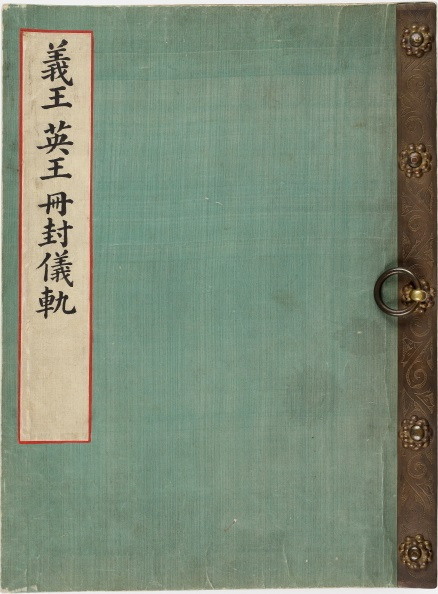 義王 英王 冊封儀軌